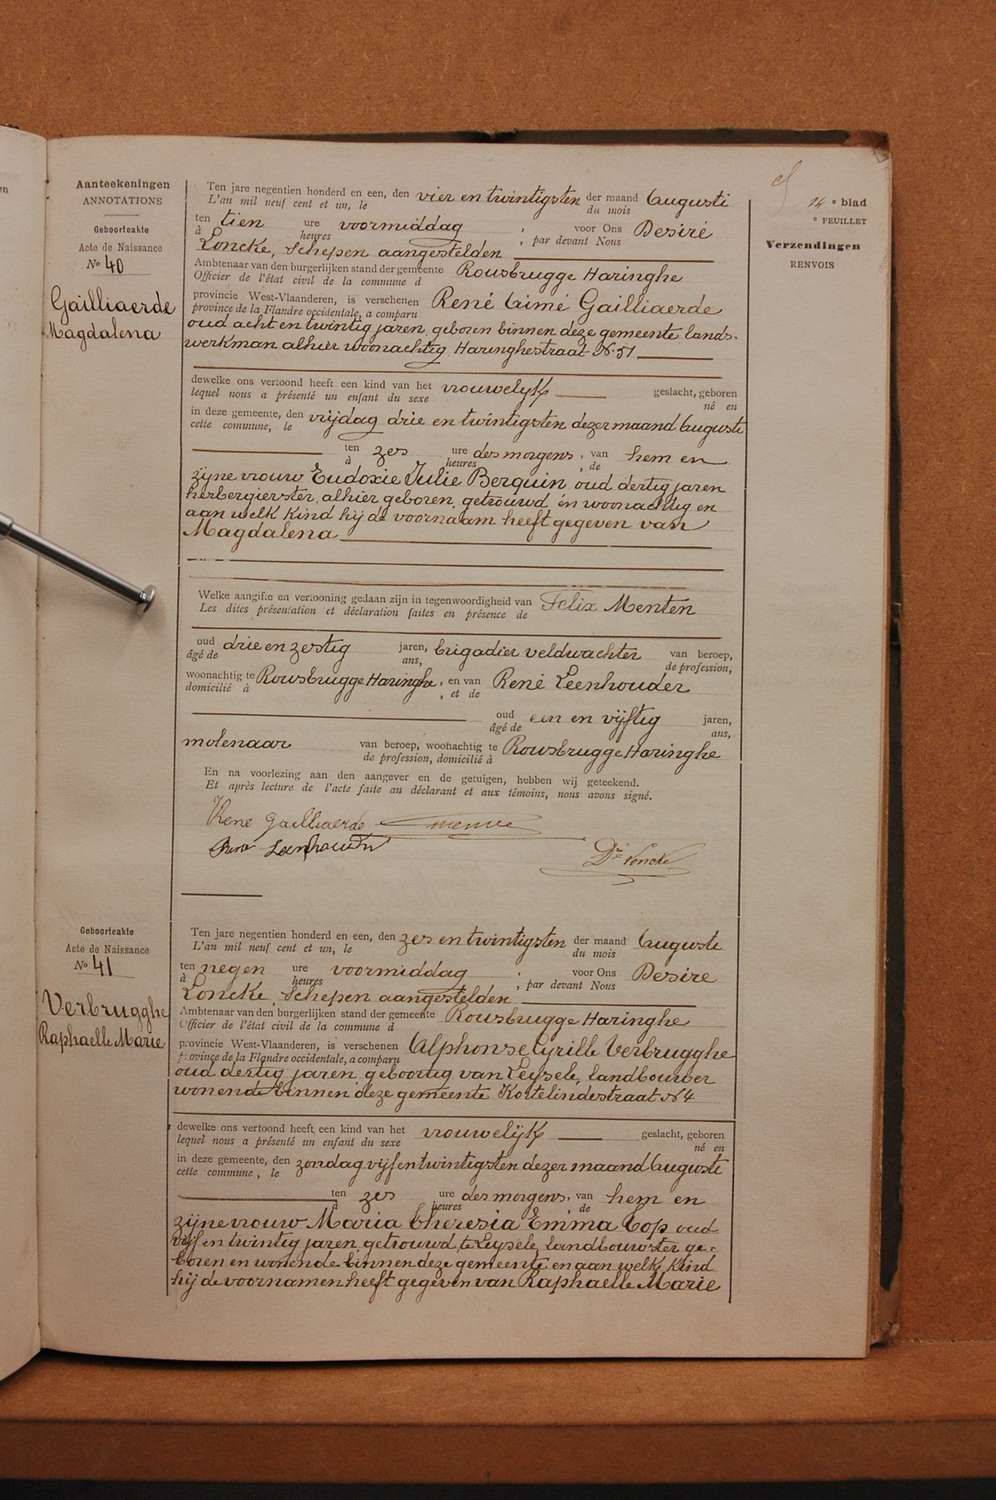 Aanteekeningen
ANNOTATIONS
Geboorteakte
Acte de Naissance
No 40
Gailliaerde
Magdalena
14e blad
e FEUILLET
Verzendingen
RENVOIS
Ten jare negentien honderd en een, den vier en twintigsten der maand Augusti
L'an mil neuf cent et un, le du mois
ten tien ure voormiddag , voor Ons Desiré
à heures , par devant Nous
Loncke, Schepen aangestelden
Ambtenaar van den burgerlijken stand der gemeente Rousbrugge Haringhe
Officier de l'état civil de la commune d
provincie West-Vlaanderen, is verschenen René Aimé Gailliaerde
province de la Flandre occidentale, a comparu
oud acht en twintig jaren, geboren binnen deze gemeente lands-
werkman alhier woonachtig Haringhestraat No 51
dewelke ons vertoond heeft een kind van het vrouwelijk geslacht, geboren
lequel nous a présenté un enfant du sexe né en
in deze gemeente, den vrijdag drie en twintigsten dezer maand Auguste
cette commune, le
ten zes ure des morgens, van hem en
à heures , de
zijne vrouw Eudoxie Julie Berquin oud dertig jaren
herbergierster, alhier geboren, getrouwd en woonachtig en
aan welk kind hij de voornaam heeft gegeven van
Magdalena
Welke aangifte en vertooning gedaan zijn in tegenwoordigheid van Felix Menten
Les dites présentation et déclaration faites en présence de
oud drie en zestig jaren, brigadier veldwachter van beroep,
âgé de ans, de profession,
woonachtig te Rousbrugge Haringhe , en van René Leenhouder
domicilié à , et de
oud een en vijftig jaren,
âgé de ans,
molenaar van beroep, woonachtig te Rousbrugge Haringhe
de profession, domicilié à
En na voorlezing aan den aangever en de getuigen, hebben wij geteekend.
Et après lecture de l'acte faite au déclarant et aux témoins, nous avons signé.
René Gailliaerde
Dre Loncke
Geboorteakte
Acte de Naissance
No 41
Verbrugghe
Raphaelle Marie
Ten jare negentien honderd en een, den zes en twintigsten der maand Auguste
L'an mil neuf cent et un, le du mois
ten negen ure voormiddag , voor Ons Desire
à heures , par devant Nous
Loncke, Schepen aangestelden
Ambtenaar van den burgerlijken stand der gemeente Rousbrugge Haringhe
Officier de l'état civil de la commune d
provincie West-Vlaanderen, is verschenen Alphonse Cyrille Verbrugghe
province de la Flandre occidentale, a comparu
oud dertig jaren, geboortig van Leysele, landbouwer
wonende binnen deze gemeente Kortelindestraat No 4
dewelke ons vertoond heeft een kind van het vrouwelijk geslacht, geboren
lequel nous a présenté un enfant du sexe né en
in deze gemeente, den zondag vijf en twintigsten dezer maand Auguste
cette commune, le
ten zes ure des morgens, van hem en
à heures de
zijne vrouw Maria Theresia Emma Top oud
vijf en twintig jaren, getrouwd te Leysele, landbouwster ge-
boren en wonende binnen deze gemeente en aan welk kind
hij de voornamen heeft gegeven van Raphaelle Marie